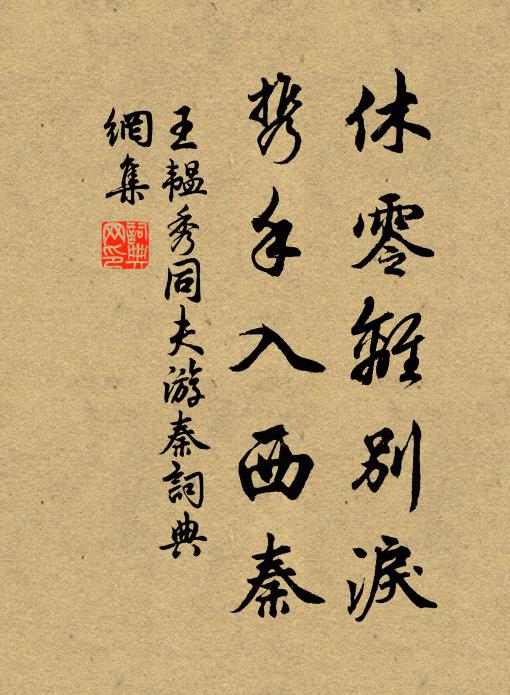 休零離別淚
携手入西秦
王韞秀同夫游秦詞典
網集
詞典
网印